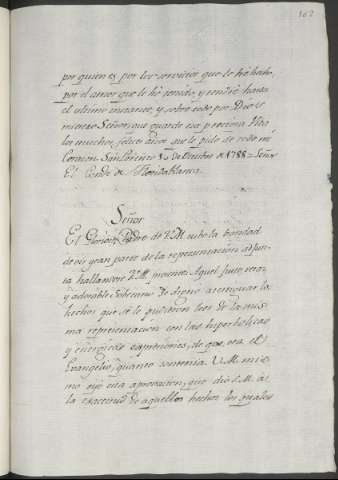 162
por quien es por los servicios que le he hecho,
por el amor que le he tenido, y tendré hasta
el ultimo instante, y sobre todo por Dios
nuestro Señor, que guarde esa preciosa Vida
los muchos, felices años que le pido de todo mi
Corazon. San Lorenzo 10 de Octubre de 1788 = Señor
El Conde de Floridablanca
Señor
El Glorioso Padre de V.M. tubo la bondad
de oir gran parte de la representacion adjun-
ta hallandose V.M. presente. Aquel Justo, veraz
y adorable Soberano se dignó atestiguar los
hechos que se le pudieron leer de la mis-
ma representacion con las impertubables
y energicas expresiones, de que era el
Evangelio, quanto contenia. V.M. mis-
mo oyó esta aprovacion, que dió S.M. á
la exactitud de aquellos hechos los quales